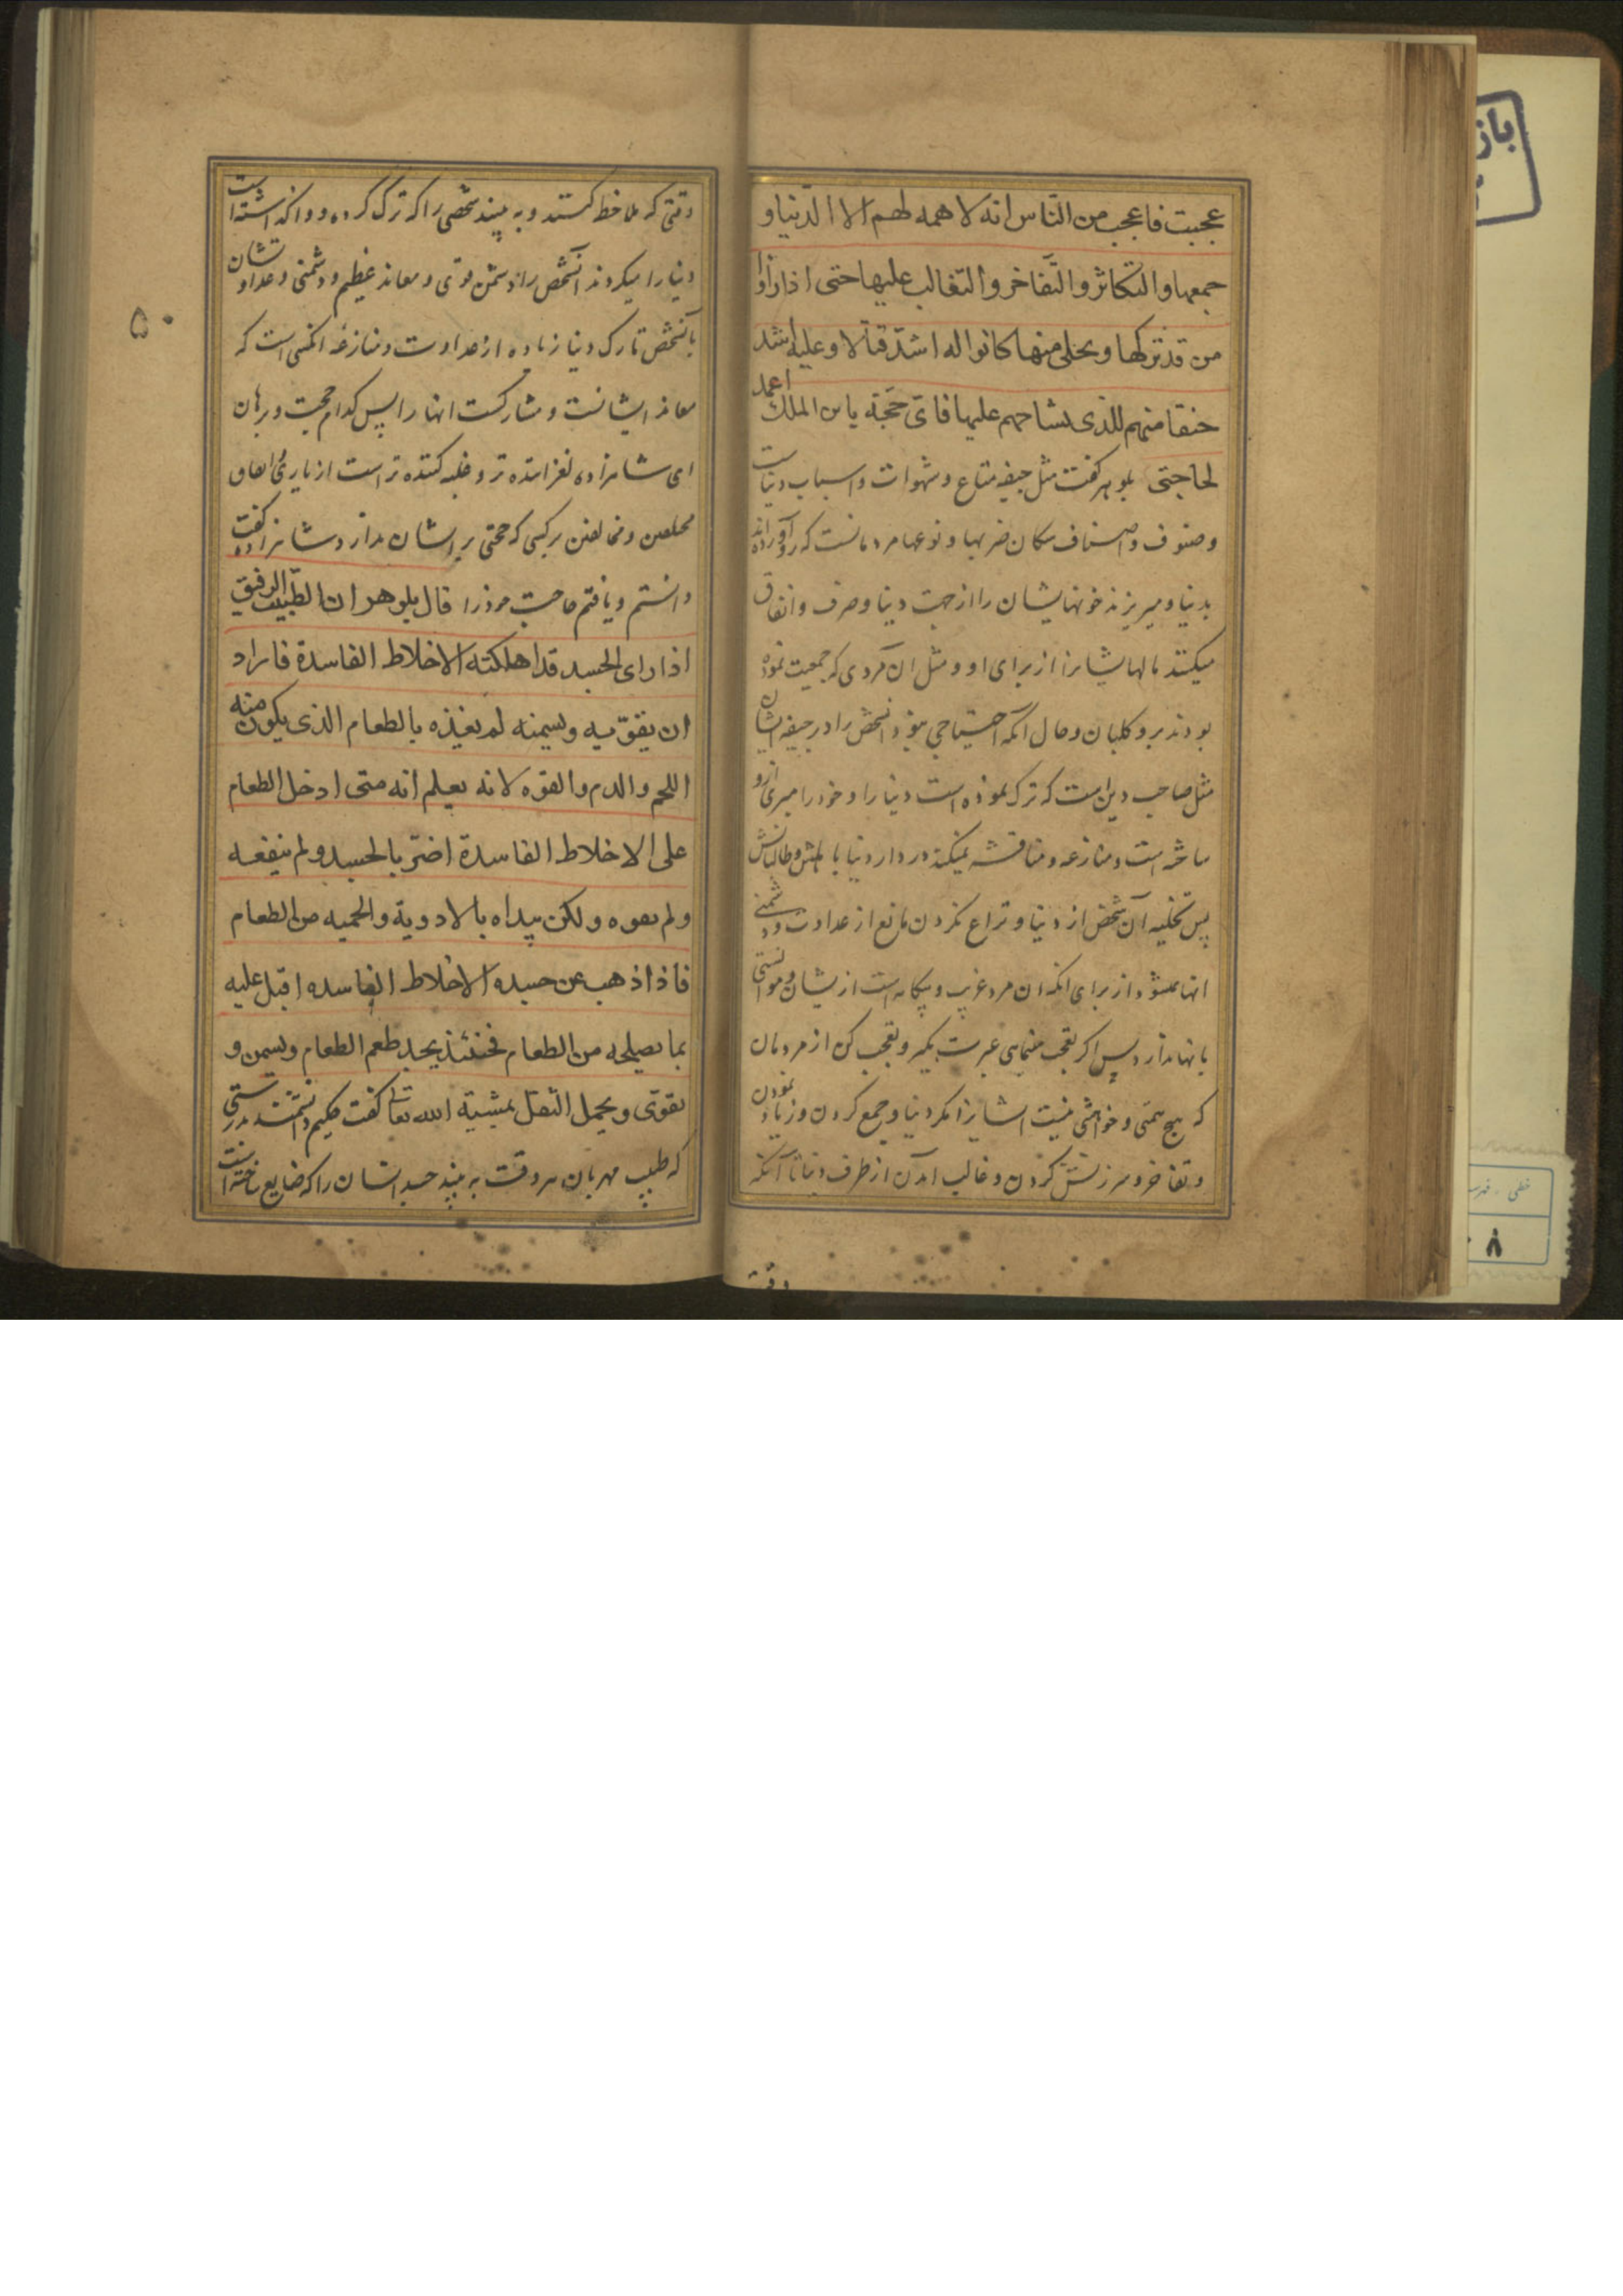 عجبت فاعجب من النّاس انه لا همه لهم الا الدّنيا و
جمعها و التكاثر و التّفاخر و التّغالب عليها حتى اذا راوا
من قد تركها و تخلى منها كانوا له اشدّ قتالا و عليه اشد
حنقا منهم للذى يشاحهم عليها فاىّ حجّة يا بن الملك اعمد
لحاجتى بلوهر گفت مثل جيفه متاع و شهوات و اسباب دنيا است
و صنوف و اصناف سكان ضربها و نوعها مردمانست كه رو آورده اند
بدنيا و ميريزند خونهايشان را از جهت دنيا و صرف و انفاق
ميكنند مالهايشانرا از براى او و مثل ان مردى كه جمعيت نموده
بودند برو كلبان و حال آنكه احتياجى نبود انشخص را در جيفه ايشان
مثل صاحب دين است كه ترك نموده است دنيا را و خود را برى ازو
ساخته است و منازعه و مناقشه نميكند در دار دنيا با اهلش و طالبانش
پس تخليه آن شخص از دنيا و نزاع نكردن مانع از عداوت و دشمنى
انها نميشود از براى انكه ان مرد غريب و بيگانه است از يشان و موانستى
بانها ندارد پس اكر تعجب مينمايى عبرت بگير و تعجب كن از مردمان
كه هيچ همّى و خواهشى نيست ايشانرا مكر دنيا و جمع كردن و زياد نمودن
و تفاخر و سرزنش كردن و غالب امدن از طرف دنيا تا آنكه
وقتى
وقتى كه ملاحظه كنند و به بينند شخصى را كه ترك كرده و واگذاشته است
دنيا را ميكردند آنشخص را دشمن قوى و معاند عظيم و دشمنى و عداوتشان
بآنشخص تارك دنيا زياده از عداوت و منازعه انكسى است كه
معاند ايشانست و مشاركست انها را پس كدام حجت و برهان
اى شاهزاده لغزاننده تر و غلبه كننده تر است از يارى و اتفاق
مختلفين و مخالفين بر كسى كه حجتى بر ايشان ندارد شاهزاده گفت
دانستم و يافتم حاجت خود را قال بلوهر ان الطّبيب الرفيق
اذا راى الجسد قد اهلكته الاخلاط الفاسدة فاراد
ان يقوّيه و يسمنه لم يغذه بالطعام الذى يكون منه
اللحم و الدم و القوه لانه يعلم انه متى ادخل الطعام
على الاخلاط الفاسدة اضرّ بالجسد و لم ينفعه
و لم يقوه و لكن يبداه بالادوية و الحميه من الطعام
فاذا اذهب عن جسده الاخلاط الفاسده اقبل عليه
بما يصلحه من الطعام فحنئذ يجد طعم الطعام و يسمن و
يقوى و يحمل الثقل بمشية الله تعالى گفت حكيم دانشمند بدرستى
كه طبيب مهربان هر وقت به بيند جسد انسان را كه ضايع ساخته است
۵۰
باز
خطى
۸